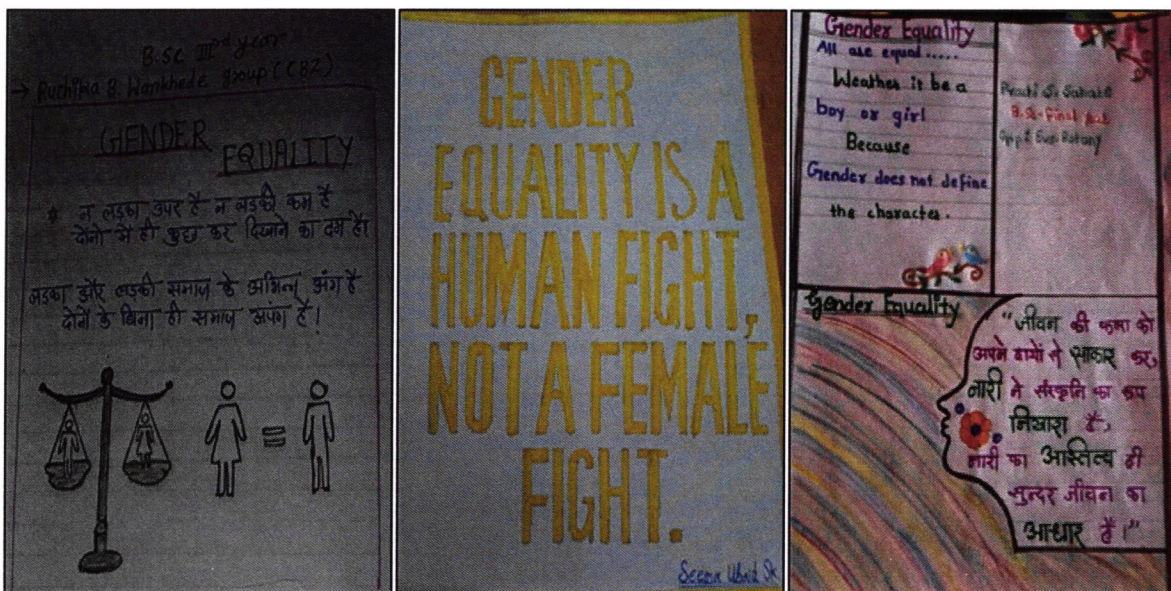 B.Sc IIIrd year
→ Ruchika B. Wankhede group (CBZ)
GENDER
EQUALITY
* न लड़का उपर है न लड़की कम है
दोनो मे ही कुछ कर दिखाने का दम है।
लड़का और लड़की समाज के अभिन्न अंग है
दोनों के बिना ही समाज अपंग है!
=
GENDER
EQUALITY IS A
HUMAN FIGHT,
NOT A FEMALE
FIGHT.
Seema
Gender Equality
All are equal.....
Weather it be a
boy or girl
Because
Gender does not define
the character.
Prachi S.
B.Sc-Final year
Gender Equality
"जीवन की कला को
अपने हाथों से साकार कर,
नारी ने संस्कृति का रूप
निखारा है,
नारी का अस्तित्व ही
सुन्दर जीवन का
आधार है।"